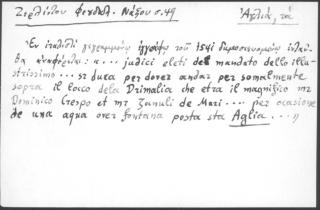 Ζερλέντου Φεουδαλ. Νάξου σ. 49
Ἀγλιά, τά
Ἐν ἰταλιστὶ γεγραμμένῳ ἐγγράφῳ τοῦ 1541 δημοσιευομένῳ
ἀναφέρεται: «... judici eleti del mandato dello illu-
strissimo ... duca per dover andar personalmente
sopra il locco dela Drimalia che etra il magnifico mr
Dominico Crespo et mr Zanuli de Mari .... per ocasione
de una aqua over fontana posta sta Aglia ... »